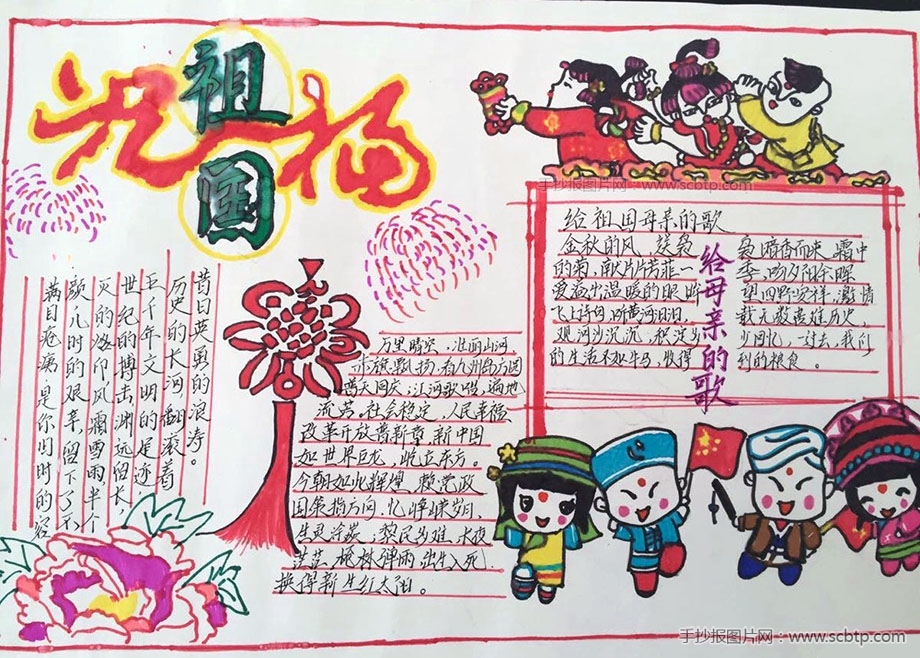 祝福
祖国
手抄报图片网:www.scbtp.com
给祖国母亲的歌
金秋的风,送袅袅暗香而来,霜中
的菊,献片片芳菲一季,吻夕阳余晖
爱溢出温暖的眼眸望四野安祥,激情
飞上诗句,听黄河汩汩,载无数苦难历史,
观河沙沉沉,积淀 少回忆,一对去,我们
的生活和牛马,收得 利的粮食。
给母亲的歌
昔日英勇的浪涛。
历史的长河翻衮着
五千年文明的足迹
世纪的博击渊远留长,
灭的烙印风霜雪雨,半个
歌儿时的艰亲,留下了不
满目疮痍,是你旧时的容
万里晴空,壮丽山河
赤旗飘扬,看九州岛方圆
普天同庆,江河歌唱,遍地
流芳。社会稳定,人民幸福
改革开放普新章,新中国
如世界巨龙,屹立东方。
今朝如此辉煌,赖党政
国策指方向,忆峥嵘岁月,
生灵涂炭,黎民多难,长夜
茫茫,枪林弹雨,出生入死,
换得新生红太阳。
手抄报图片网:www.scbtp.com